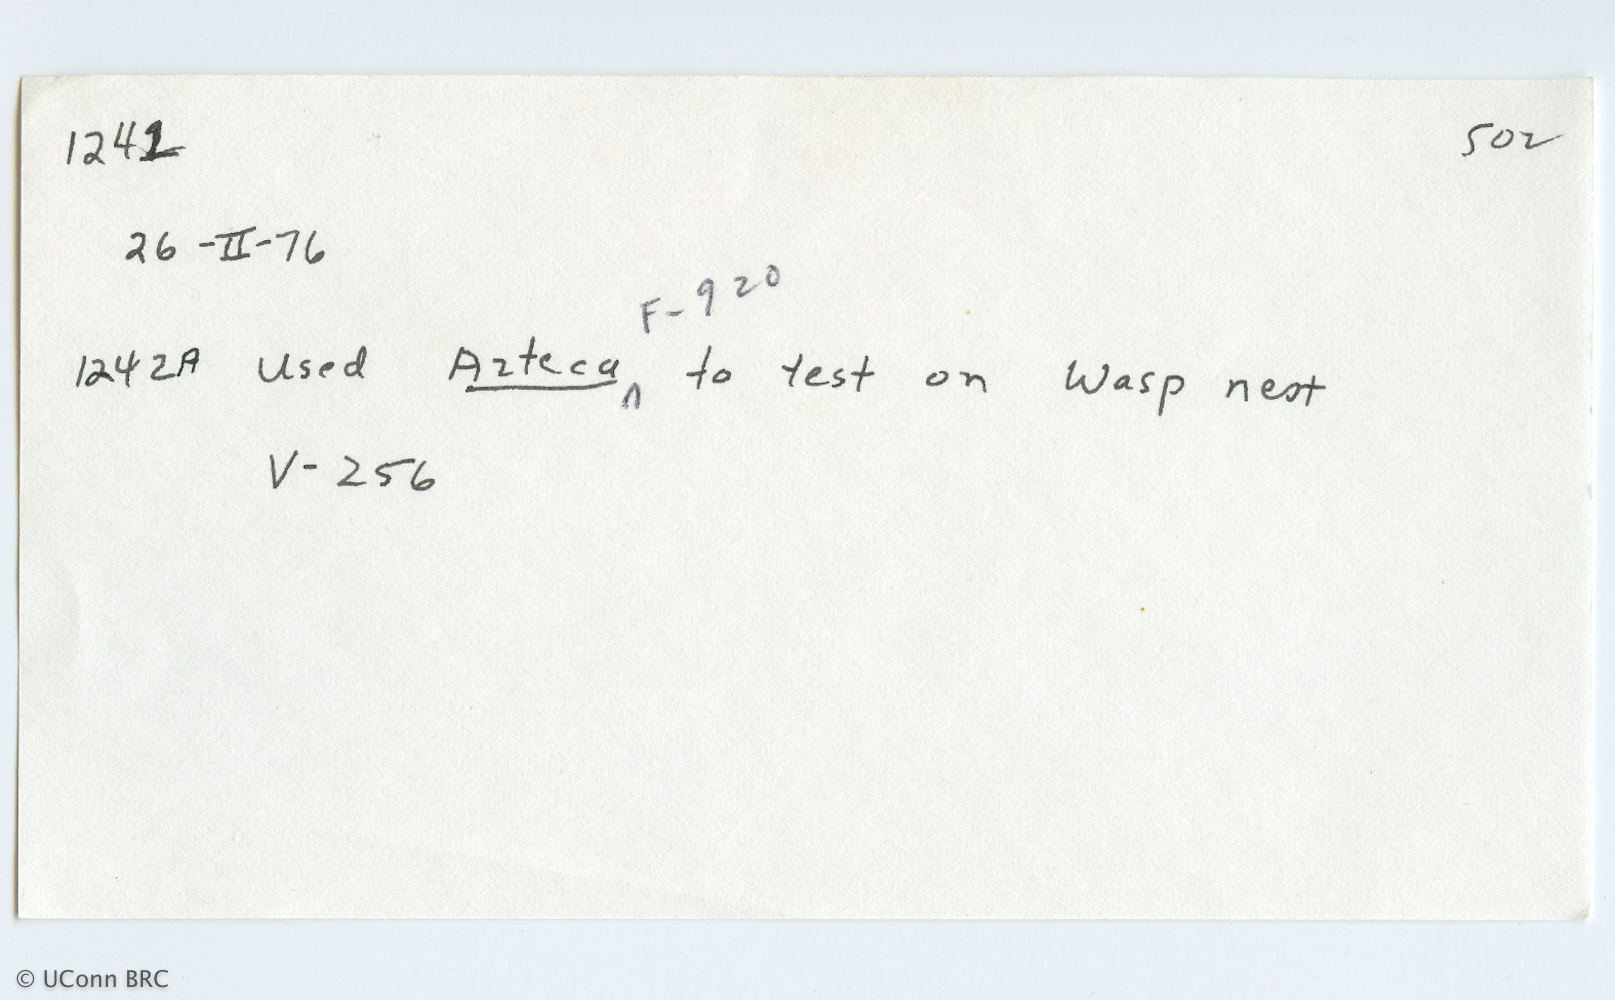 1242 502
26-II-76
F-920
1242A Used Azteca ^ to test on Wasp nest
V-256
© UConn BRC